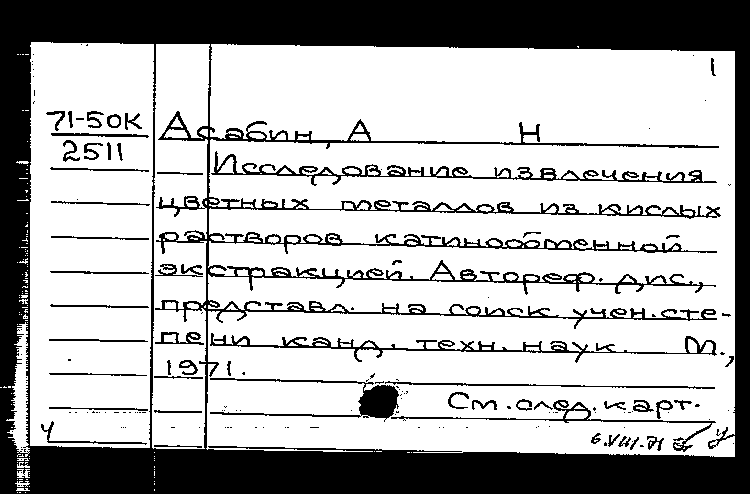 1
71-50К Асабин, А Н
2511
Исследование извлечения
цветных металлов из кислых
растворов катинообменной
экстракцией. Автореф. дис.,
представл. на соиск. учен. сте-
пени канд. техн. наук. М.,
1971.
См. след. карт.
Ч 6.VIII.71